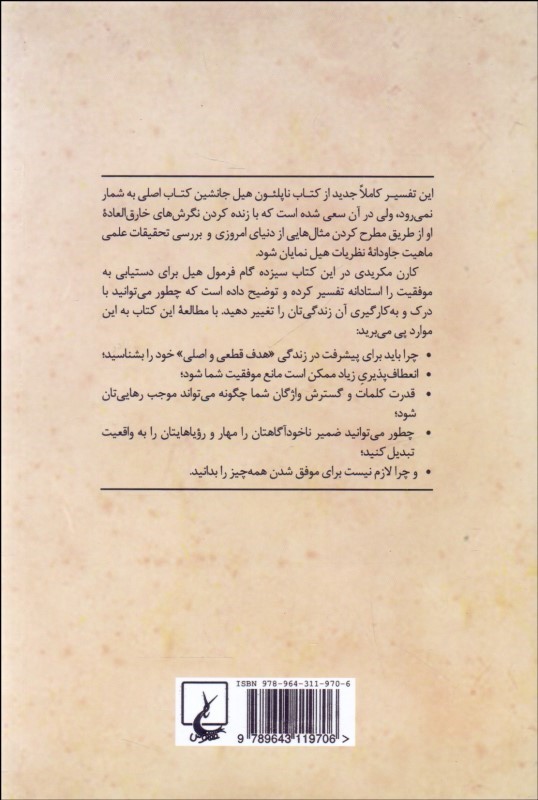 این تفسیر کاملاً جدید از کتاب ناپلئون هیل جانشین کتاب اصلی به شمار
نمی‌رود، ولی در آن سعی شده است که با زنده کردن نگرش‌های خارق‌العادهٔ
او از طریق مطرح کردن مثال‌هایی از دنیای امروزی و بررسی تحقیقات علمی
ماهیت جاودانهٔ نظریات هیل نمایان شود.
کارن مکریدی در این کتاب سیزده گام فرمول هیل برای دستیابی به
موفقیت را استادانه تفسیر کرده و توضیح داده است که چطور می‌توانید با
درک و به‌کارگیری آن زندگی‌تان را تغییر دهید. با مطالعهٔ این کتاب به این
موارد پی می‌برید:
• چرا باید برای پیشرفت در زندگی «هدف قطعی و اصلی» خود را بشناسید؛
• انعطاف‌پذیریِ زیاد ممکن است مانع موفقیت شما شود؛
• قدرت کلمات و گسترش واژگان شما چگونه می‌تواند موجب رهایی‌تان
شود؛
• چطور می‌توانید ضمیر ناخودآگاهتان را مهار و رؤیاهایتان را به واقعیت
تبدیل کنید؛
• و چرا لازم نیست برای موفق شدن همه‌چیز را بدانید.
ISBN 978-964-311-970-6
9 789643 119706 >